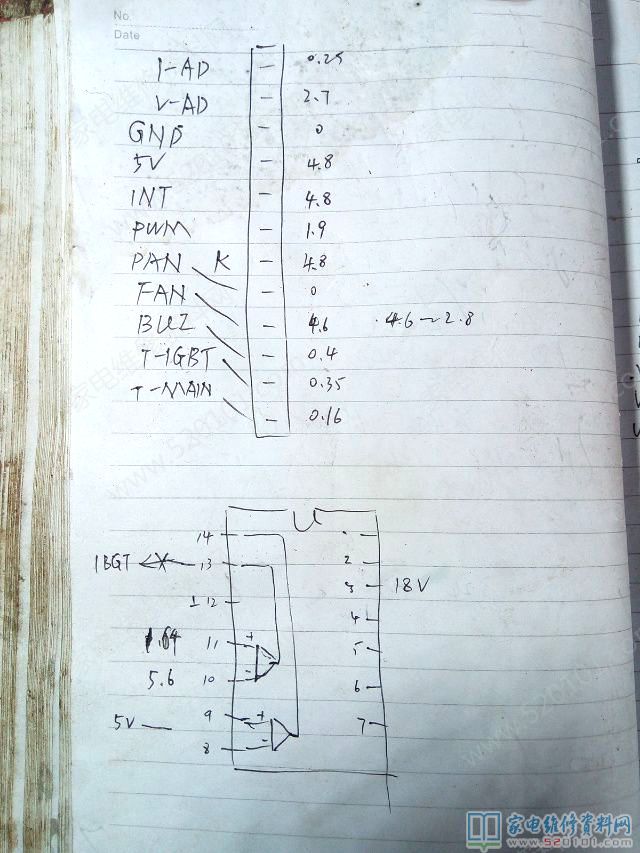 No.
Date
I-AD — 0.25
V-AD — 2.7
GND — 0
5V — 4.8
INT — 4.8
PWM — 1.9
PAN K — 4.8
FAN — 0
BUZ — 4.6 4.6~2.8
T-IGBT — 0.4
T-MAIN — 0.35
— 0.16
14
IBGT 13 2
⊥ 12 3 18V
4
1.64 11 + 5
5.6 10 - 6
5V 9 + 7
8 -
家电维修资料网
www.520101.com